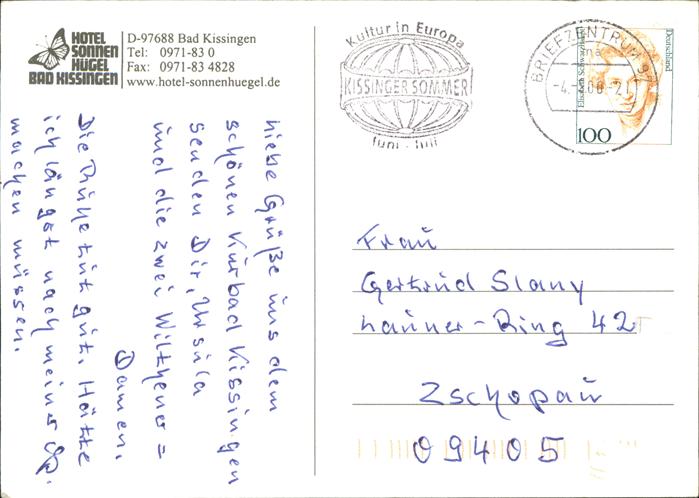 HOTEL
SONNEN
HÜGEL
BAD KISSINGEN
D-97688 Bad Kissingen
Tel: 0971-83 0
Fax: 0971-83 4828
www.hotel-sonnenhuegel.de
Kultur in Europa
KISSINGER SOMMER
Juni - Juli
BRIEFZENTRUM 97
Elisabeth Schwarzhaupt
Deutschland
100
Liebe Grüße aus dem
schönen Kurbad Kissingen
senden Dir, Ursula
und die zwei Wilthener =
Damen.
Die Ruhe tut gut. Hätte
ich längst nach meiner Op.
machen müssen.
Frau
Gertrud Slany
Launer-Ring 42
Zschopau
09405